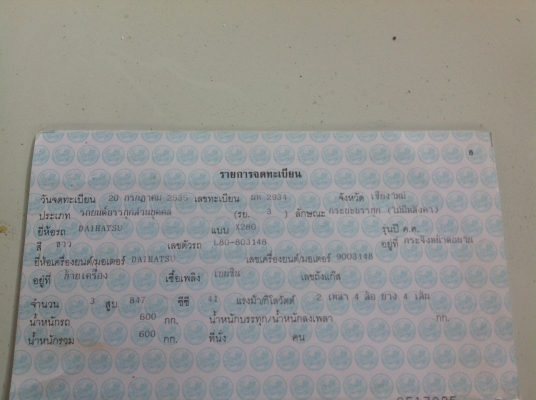 8
รายการจดทะเบียน
วันจดทะเบียน 20 กรกฎาคม 2535 เลขทะเบียน 2934 จังหวัด เชียงใหม่
ประเภท รถยนต์บรรทุกส่วนบุคคล (รย. 3 ) ลักษณะ กระบะบรรทุก (ไม่มีหลังคา)
ยี่ห้อรถ DAIHATSU แบบ X280 รุ่นปี ค.ศ.
สี ขาว เลขตัวรถ L80-803148 อยู่ที่
ยี่ห้อเครื่องยนต์/มอเตอร์ DAIHATSU เลขเครื่องยนต์/มอเตอร์ 9003148
อยู่ที่ ท้ายเครื่อง เชื้อเพลิง เบนซิน เลขถังแก๊ส
จำนวน 3 สูบ 847 ซีซี 41 แรงม้า/กิโลวัตต์ 2 เพลา 4 ล้อ ยาง 4 เส้น
น้ำหนักรถ 600 กก. น้ำหนักบรรทุก/น้ำหนักลงเพลา กก.
น้ำหนักรวม 600 กก. ที่นั่ง คน